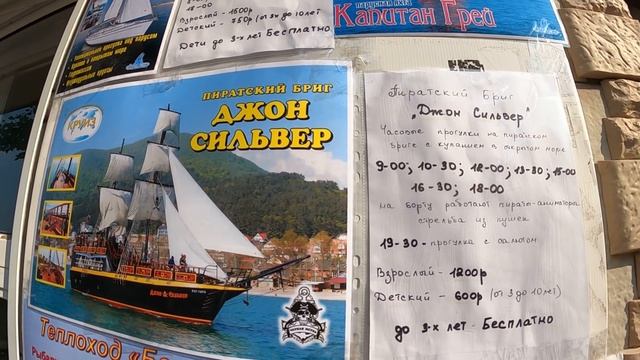 18-00
Взрослый - 1500р
Детский - 750р (от 3 до 10 лет)
Дети до 3-х лет Бесплатно
парусная яхта
Капитан Грей
Круиз
ПИРАТСКИЙ БРИГ
ДЖОН
СИЛЬВЕР
Теплоход
Пиратский Бриг
„Джон Сильвер"
Часовые прогулки на пиратском
бриге с купанием в открытом море
9-00; 10-30; 12-00; 13-30; 15-00
16-30; 18-00
на борту работают пираты-аниматоры
стрельба из пушек
19-30 - прогулка с салютом
Взрослый - 1200р
Детский - 600р (от 3 до 10 лет)
до 3-х лет - Бесплатно